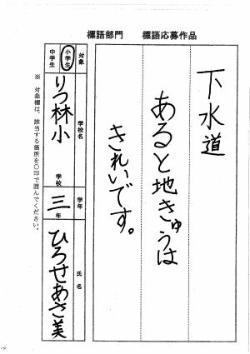 標語部門　標語応募作品
下水道
あると地きゅうは
きれいです。
対象
小学生
中学生
学校名
りつ林小
学校
学年
三年
氏名
ひろせあさ美
※ 対象欄は、該当する箇所を○印で囲んでください。